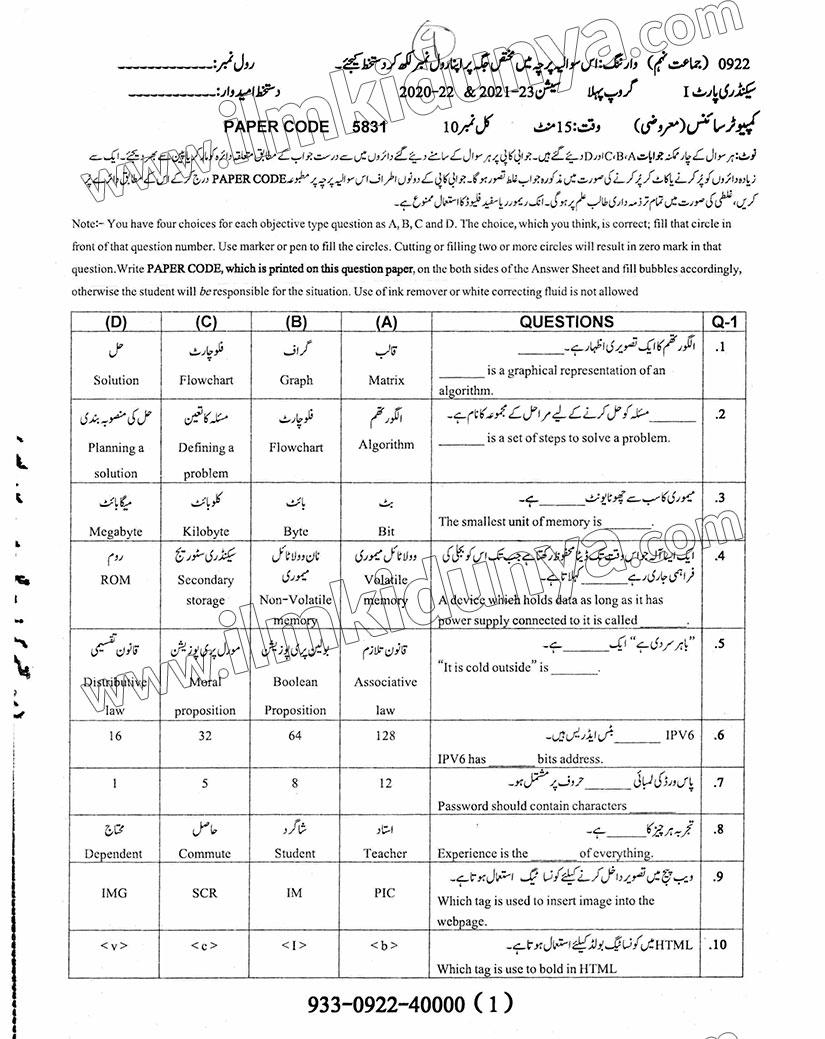 9
0922 (جماعت نہم) وارننگ: اس سوالیہ پرچہ میں مختص جگہ پر اپنا رول نمبر لکھ کر دستخط کیجئے۔ رول نمبر: ____________
سیکنڈری پارٹ I گروپ پہلا سیشن 2021-23 & 2020-22 دستخط امیدوار: ____________
کمپیوٹر سائنس (معروضی) وقت: 15 منٹ کل نمبر 10 PAPER CODE 5831
نوٹ: ہر سوال کے چار ممکنہ جوابات C،B،A اور D دیئے گئے ہیں۔ جوابی کاپی پر ہر سوال کے سامنے دیئے گئے دائروں میں سے درست جواب کے مطابق متعلقہ دائرہ کو مارکر یا پین سے بھر دیجئے۔ ایک سے
زیادہ دائروں کو پُر کرنے یا کاٹ کر پُر کرنے کی صورت میں مذکورہ جواب غلط تصور ہوگا۔ جوابی کاپی کے دونوں اطراف اس سوالیہ پرچہ پر مطبوعہ PAPER CODE درج کر کے اس کے مطابق دائرے پُر
کریں، غلطی کی صورت میں تمام تر ذمہ داری طالب علم پر ہوگی۔ انک ریموور یا سفید فلیوڈ کا استعمال ممنوع ہے۔
Note:- You have four choices for each objective type question as A, B, C and D. The choice, which you think, is correct; fill that circle in
front of that question number. Use marker or pen to fill the circles. Cutting or filling two or more circles will result in zero mark in that
question.Write PAPER CODE, which is printed on this question paper, on the both sides of the Answer Sheet and fill bubbles accordingly,
otherwise the student will be responsible for the situation. Use of ink remover or white correcting fluid is not allowed
(D) (C) (B) (A) QUESTIONS Q-1
حل فلوچارٹ گراف قالب الگورتھم کا ایک تصویری اظہار ہے۔ ______ .1
Solution Flowchart Graph Matrix ______ is a graphical representation of an
algorithm.
حل کی منصوبہ بندی مسئلہ کا تعین فلوچارٹ الگورتھم ______ مسئلہ کو حل کرنے کے لیے مراحل کے مجموعہ کا نام ہے۔ .2
Planning a Defining a Flowchart Algorithm ______ is a set of steps to solve a problem.
solution problem
میگابائٹ کلوبائٹ بائٹ بٹ میموری کا سب سے چھوٹا یونٹ ______ ہے۔ .3
Megabyte Kilobyte Byte Bit The smallest unit of memory is ______.
روم سیکنڈری سٹوریج نان وولاٹائل وولاٹائل میموری ایک ایسا آلہ جو اس وقت تک ڈیٹا محفوظ رکھتا ہے جب تک اس کو بجلی کی .4
میموری فراہمی جاری رہے ______ کہلاتا ہے۔
ROM Secondary Non-Volatile Volatile A device which holds data as long as it has
storage memory memory power supply connected to it is called ______.
قانون تقسیمی مورل پروپوزیشن بولین پروپوزیشن قانون تلازم "باہر سردی ہے" ایک ______ ہے۔ .5
Distributive Moral Boolean Associative "It is cold outside" is ______.
law proposition Proposition law
16 32 64 128 IPV6 ______ بٹس ایڈریس ہیں۔ .6
IPV6 has ______ bits address.
1 5 8 12 پاس ورڈ کی لمبائی ______ حروف پر مشتمل ہو۔ .7
Password should contain characters ______
محتاج حاصل شاگرد استاد تجربہ ہر چیز کا ______ ہے۔ .8
Dependent Commute Student Teacher Experience is the ______ of everything.
IMG SCR IM PIC ویب پیج میں تصویر داخل کرنے کیلئے کونسا ٹیگ استعمال ہوتا ہے۔ .9
Which tag is used to insert image into the
webpage.
<v> <c> <I> <b> HTML میں کونسا ٹیگ بولڈ کیلئے استعمال ہوتا ہے۔ .10
Which tag is use to bold in HTML
933-0922-40000 (1)
www.ilmkidunya.com
www.ilmkidunya.com
www.ilmkidunya.com